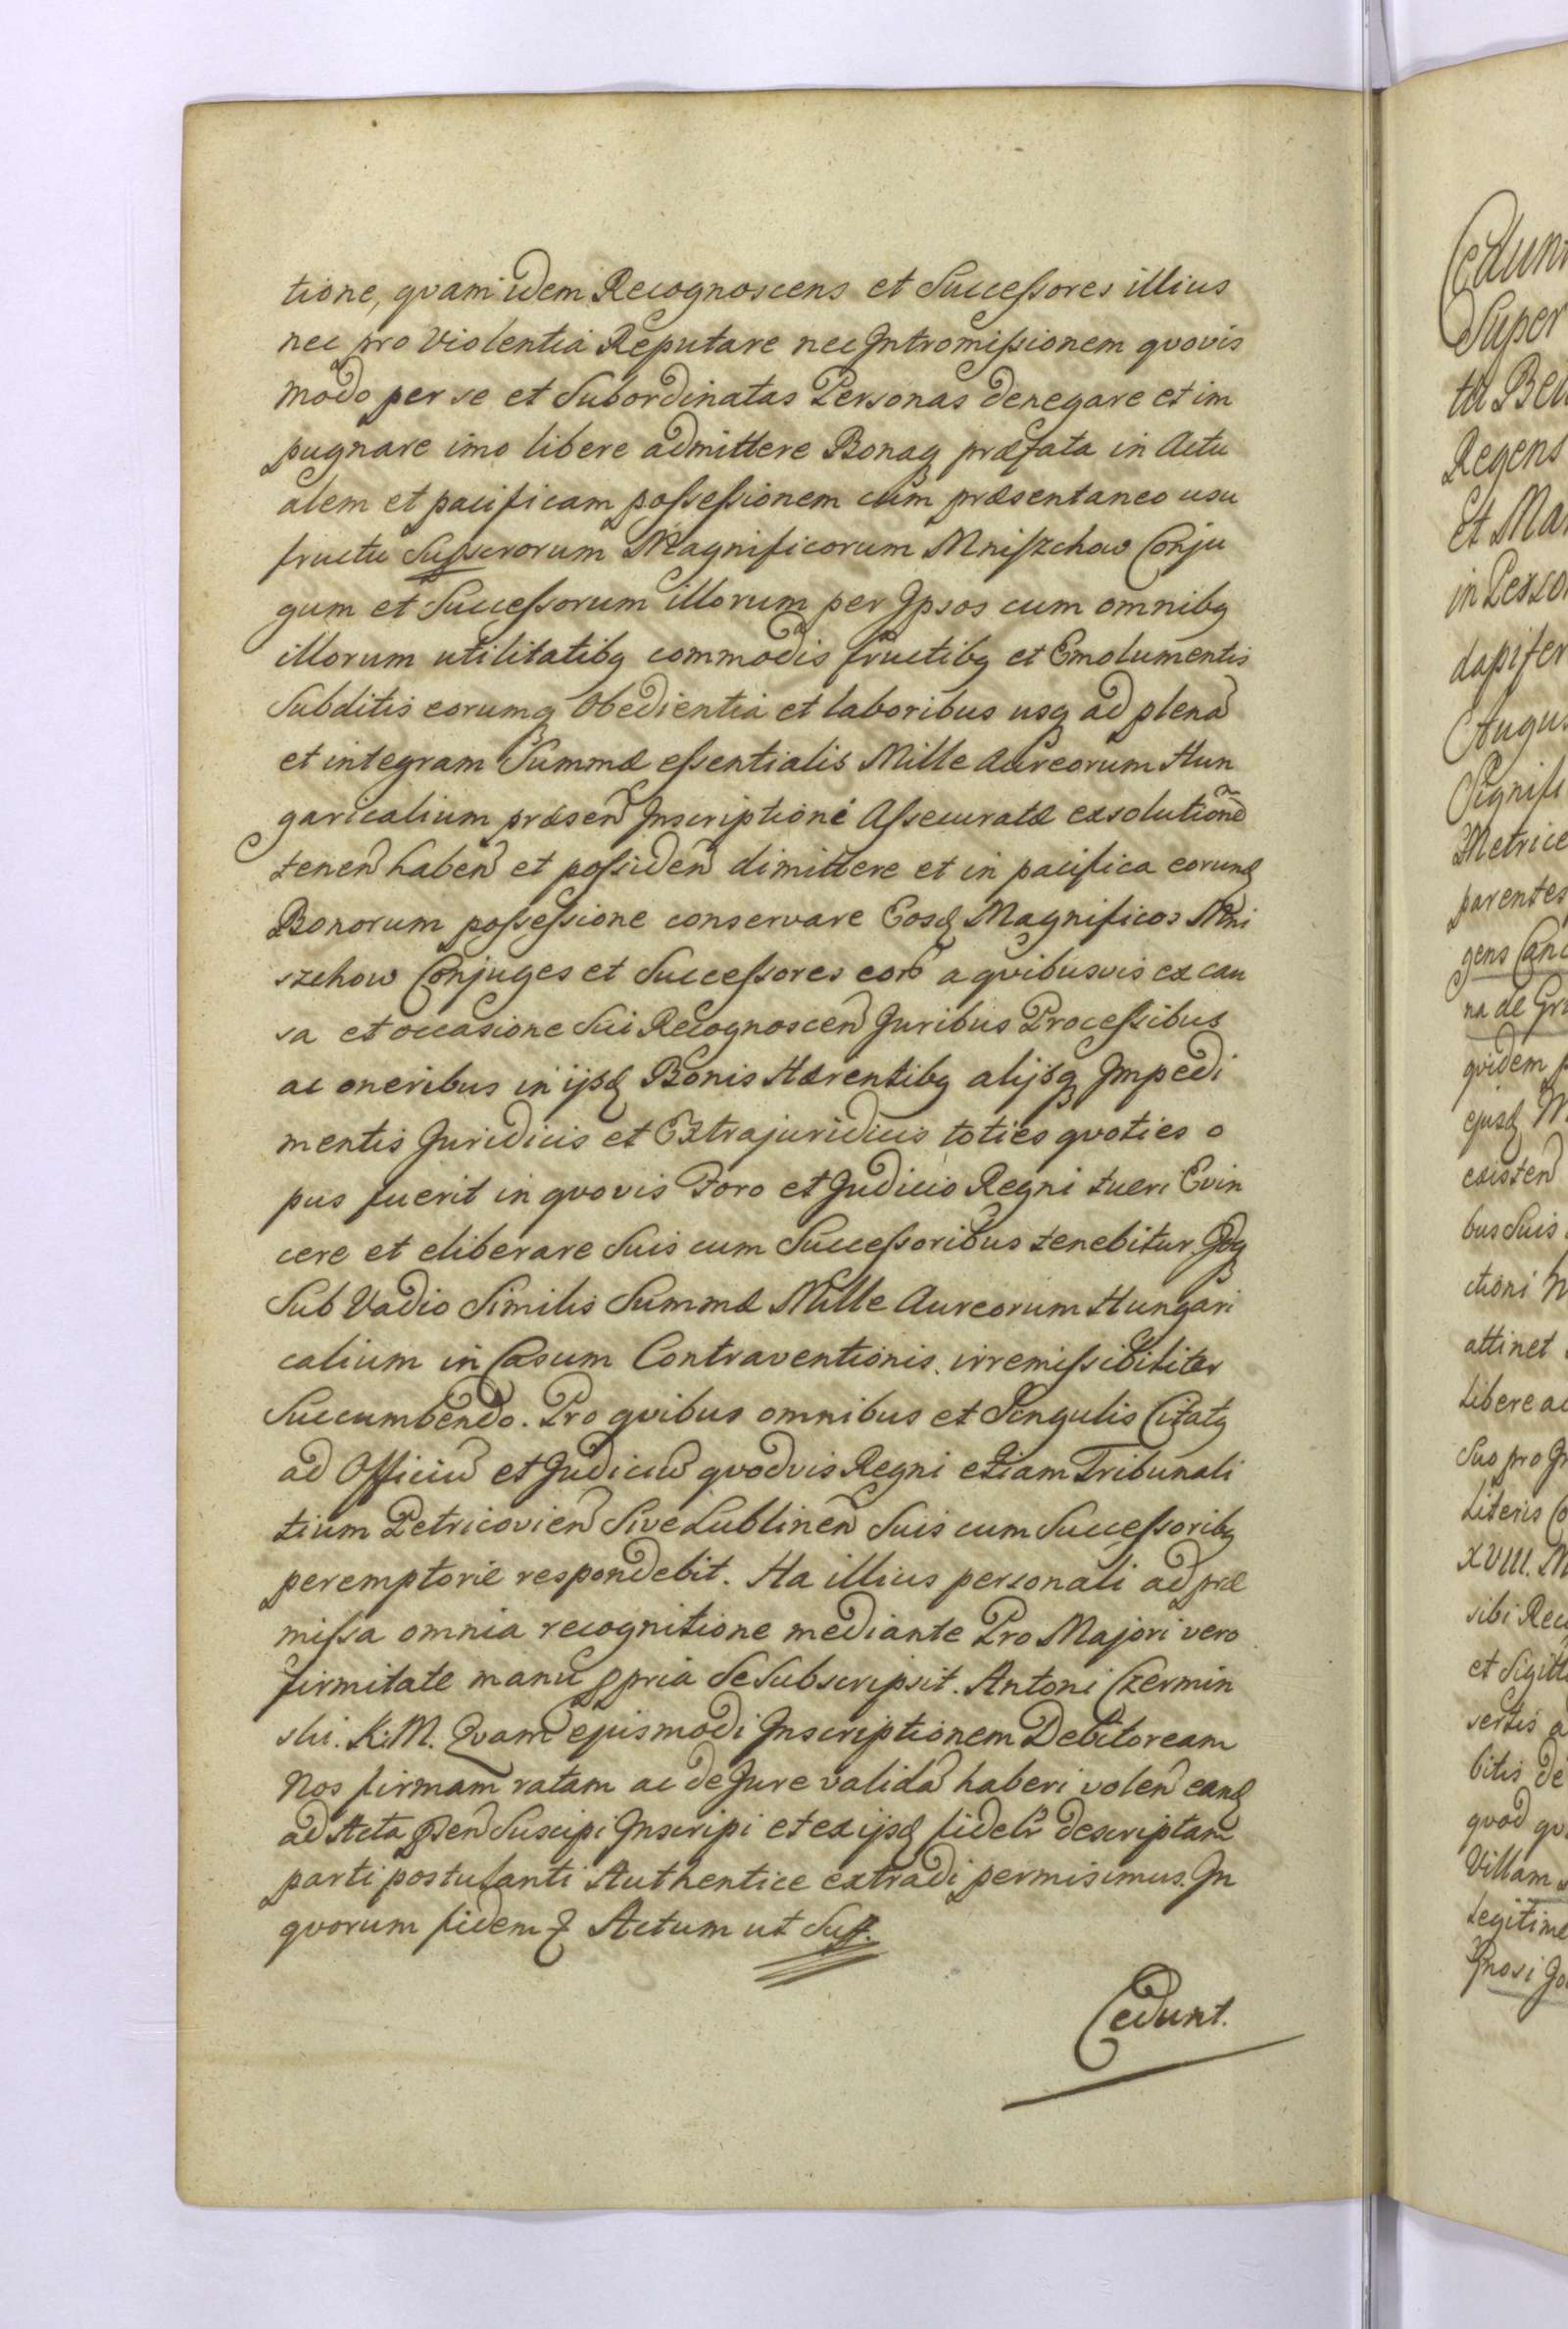 tione, qvam idem Recognoscens et Successores illius
nec pro Violentia Reputare nec Intromissionem qvovis
modo per se et Subordinatas Personas denegare et im
pugnare imo libere admittere Bonaq præfata in Actu
alem et pacificam possessionem cum præsentaneo usu
fructu Magnificorum Mniszchow Conju
gum et Successorum illorum per Ipsos cum omnibq
illorum utilitatibq commodis fructibq et Emolumentis
Subditis eorumq Obedientia et laboribus usq ad plenã
et integram Summæ essentialis Mille Aureorum Hun
garicalium præseñ Inscriptione Assecuratæ exsolutionẽ
teneñ habeñ et possideñ dimittere et in pacifica eorund
Bonorum possessione conservare Eosd Magnificos Mni
szchow Conjuges et Successores eor a qvibusvis ex cau
sa et occasione Sui Recognosceñ Juribus Processibus
ac oneribus in ijsd Bonis Hærentibq alijsq Impedi
mentis Juridicis et Extrajuridicis toties qvoties o
pus fuerit in qvovis Foro et Judicio Regni tueri Evin
cere et eliberare Suis cum Successoribus tenebitur. Idq
Sub Vadio Similis Summæ Mille Aureorum Hungari
calium in Casum Contraventionis irremissibiliter
Succumbendo. Pro qvibus omnibus et Singulis Citatq
ad Officiũ et Judiciũ qvodvis Regni etiam Tribunali
tium Petricovieñ Sive Lublineñ Suis cum Successoribq
peremptorie respondebit. Ita illius personali ad præ
missa omnia recognitione mediante Pro Majori vero
firmitate manu ppria Se Subscripsit. Antoni Czermin
ski. K: M. Qvam ejusmodi Inscriptionem Debitoream
Nos firmam ratam ac de Jure validã haberi voleñ eand
ad Acta pseñ Suscipi Inscripi et ex ijsd fidelr descriptam
parti postulanti Authentice extradi permisimus. In
qvorum fidem Actum ut Sup.
Cedunt.
Cedun
Super
Regens
et Ma
dapifer
Augus
Signifi
Metrice
parentes
gens Canc
na de Gr
qvidem p
ejusd M
existeñ
bus Suis
ctioni
attinet
libere ac
Suo pro
Literis Co
XVIII. M
sibi Rec
et Sigill
sertis a
bitis de
qvod qv
Villam
legitime